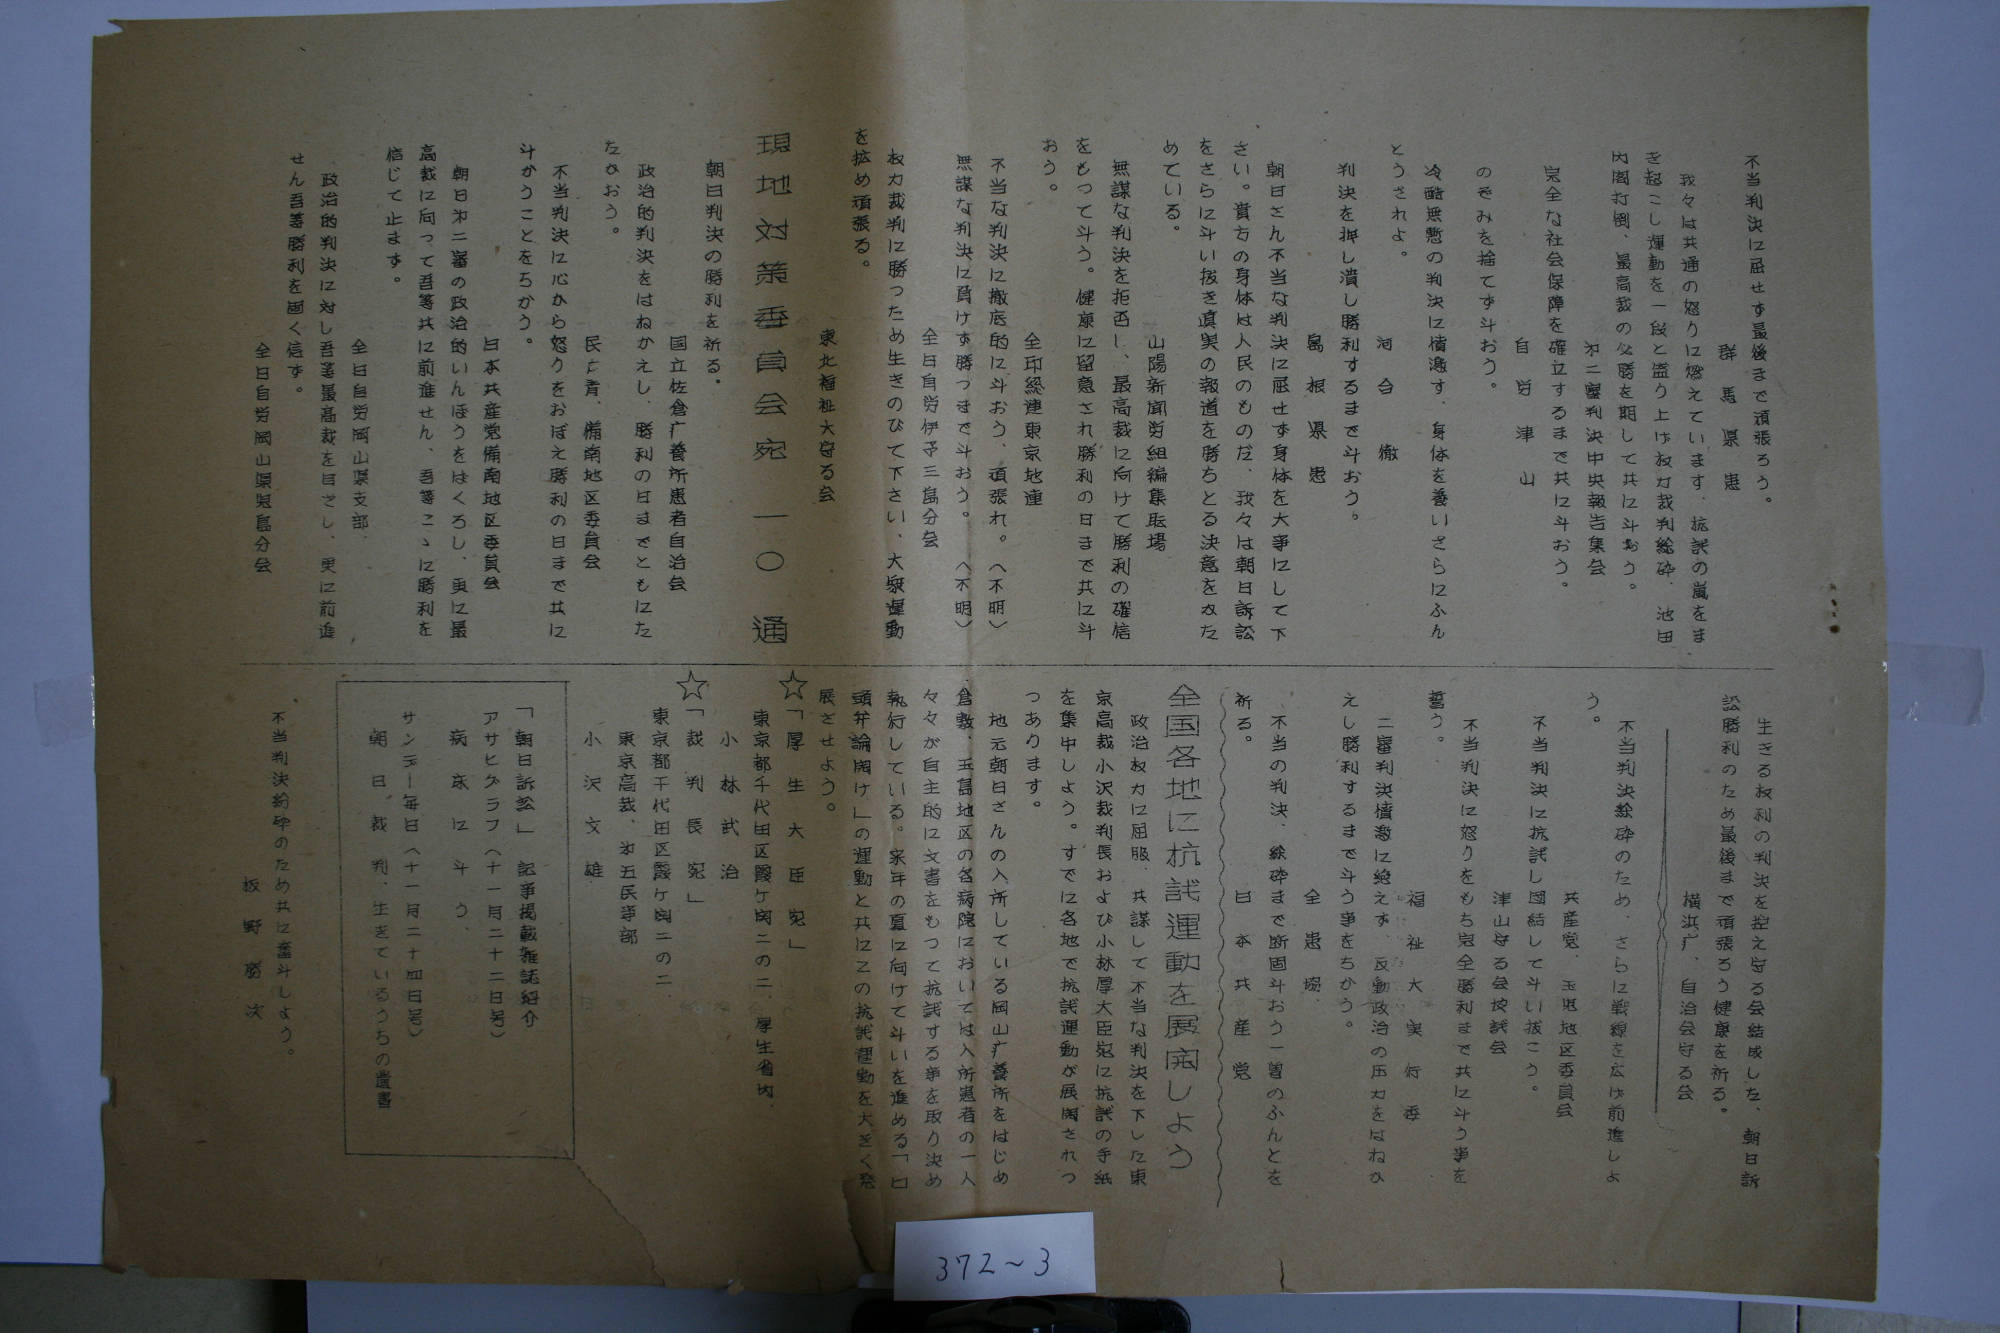 不当判決に屈せず最後まで頑張ろう。
群馬県患
我々は共通の怒りに燃えています、抗議の嵐をま
き起こし運動を一段と盛り上げ权力裁判紛砕、池田
内閣打倒、最高裁の必勝を期して共に斗おう。
㐧二審判決中央報告集会
完全な社会保障を確立するまで共に斗おう。
自労津山
のぞみを捨てず斗おう。
冷酷無慙の判決に憤激す、身体を養いさらにふん
とうされよ。
河合徹
判決を押し潰し勝利するまで斗おう。
島根県患
朝日さん不当な判決に屈せず身体を大事にして下
さい。貴方の身体は人民のものだ、我々は朝日訴訟
をさらに斗い抜き真実の報道を勝ちとる決意をかた
めている。
山陽新聞労組編集职場
無謀な判決を拒否し、最高裁に向けて勝利の確信
をもって斗う。健康に留意され勝利の日まで共に斗
おう。
全印総連東京地連
不当な判決に撤底的に斗おう、頑張れ。（不明）
無謀な判決に負けず勝つまで斗おう。（不明）
全日自労伊予三島分会
权力裁判に勝つため生きのびて下さい、大衆運動
を拡め頑張る。
東北福祉大守る会
現地対策委員会宛 一〇通
朝日判決の勝利を祈る。
国立佐倉疒養所患者自治会
政治的判決をはねかえし、勝利の日までともにた
たかおう。
民青、備南地区委員会
不当判決に心から怒りをおぼえ勝利の日まで共に
斗かうことをちかう。
日本共産党備南地区委員会
朝日㐧二審の政治的いんぼうをばくろし、更に最
高裁に向って吾等共に前進せん、吾等こゝに勝利を
信じて止ます。
全日自労岡山県支部、
政治的判決に対し吾等最高裁を目ざし、更に前進
せん吾等勝利を固く信ず。
全日自労岡山県児島分会
生きる权利の判決を控え守る会結成した、朝日訴
訟勝利のため最後まで頑張ろう健康を祈る。
横浜疒、自治会守る会
不当判決紛砕のため、さらに戦線を広げ前進しよ
う。
共産党、玉児地区委員会
不当判決に抗議し団結して斗い抜こう。
津山守る会抗議会
不当判決に怒りをもち完全勝利まで共に斗う事を
誓う。
福祉大実行委
二審判決憤激に絶えず、反動政治の圧力をはねか
えし勝利するまで斗う事をちかう。
全患
不当の判決、紛砕まで断固斗おう一層のふんとを
祈る。
日本共産党
全国各地に抗議運動を展開しよう
政治权力に屈服、共謀して不当な判決を下した東
京高裁小沢裁判長および小林厚大臣宛に抗議の手紙
を集中しよう。すでに各地で抗議運動が展開されつ
つあります。
地元朝日さんの入所している岡山疒養所をはじめ
倉敷、玉島地区の各病院においては入所患者の一人
々々が自主的に文書をもって抗議する事を取り決め
執行している。来年の夏に向けて斗いを進める「口
頭弁論開け」の運動と共にこの抗議運動を大きく発
展させよう。
☆「厚生大臣宛」
東京都千代田区霞ケ関二の二、厚生省内、
小林武治
☆「裁判長宛」
東京都千代田区霞ケ関二の二
東京高裁、㐧五民事部
小沢文雄
「朝日訴訟」記事掲載雑誌紹介
アサヒグラフ（十一月二十二日号）
病床に斗う、
サンデー毎日（十一月二十四日号）
朝日、裁判、生きているうちの遺書
不当判決紛砕のため共に奮斗しよう。
板野勝次
372～3